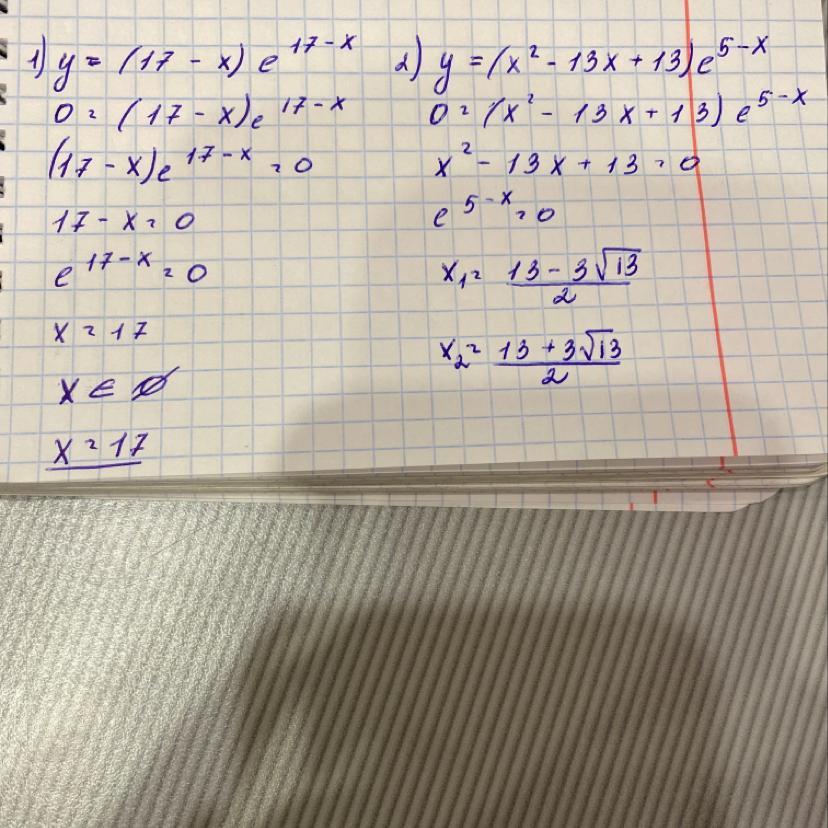 1) y = (17 - x) e^{17-x}
0 = (17 - x)e^{17-x}
(17 - x)e^{17-x} = 0
17 - x = 0
e^{17-x} = 0
x = 17
x ∈ ∅
x = 17
2) y = (x² - 13x + 13)e^{5-x}
0 = (x² - 13x + 13) e^{5-x}
x² - 13x + 13 = 0
e^{5-x} = 0
x₁ = \frac{13 - 3√13}{2}
x₂ = \frac{13 + 3√13}{2}